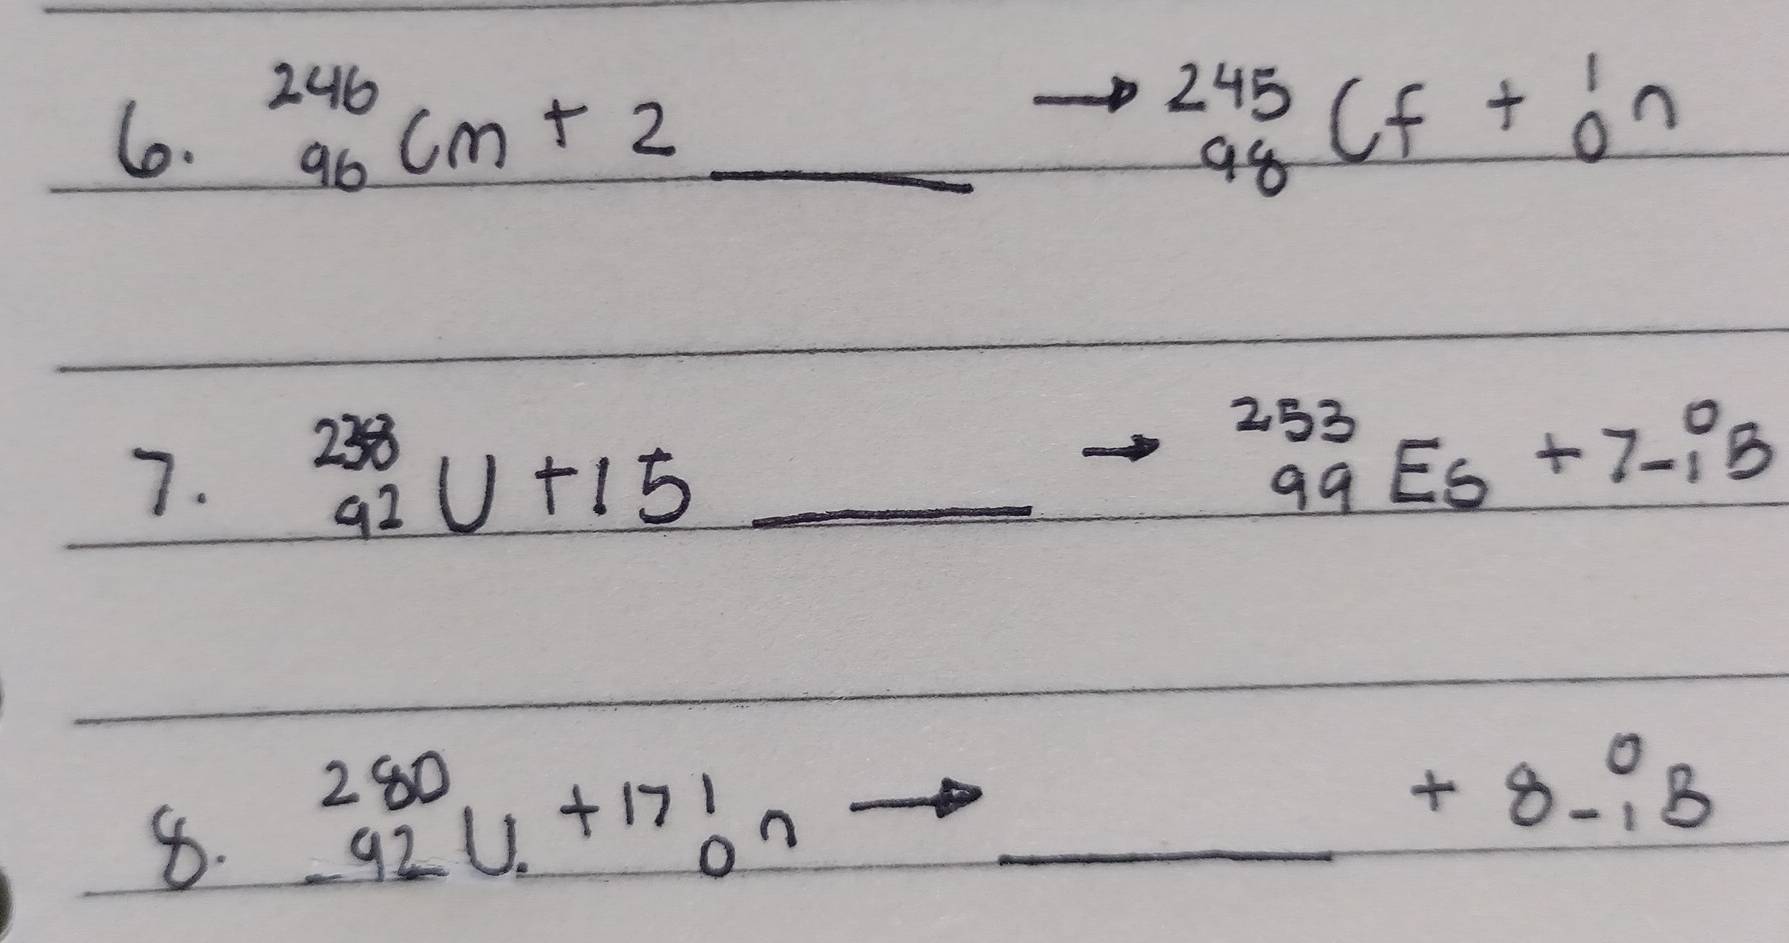 6. ²⁴⁶₉₆Cm + 2 ____ → ²⁴⁵₉₈Cf + ¹₀n
7. ²³⁸₉₂U + 15 ____ → ²⁵³₉₉Es + 7 ⁰₋₁B
8. ²⁸⁰₉₂U. + 17 ¹₀n → ____ + 8 ⁰₋₁B